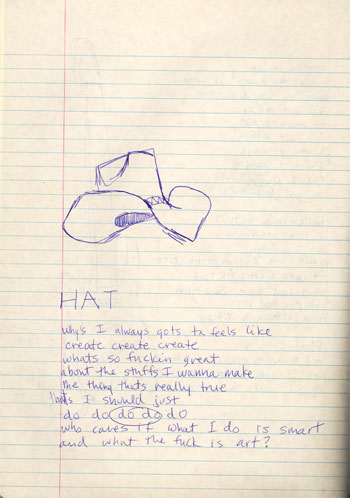 HAT
why's I always gots ta feels like
create create create
whats so fuckin great
about the stuffs I wanna make
the thing thats really true
is I should just
do do do do do
who cares if what I do is smart
and what the fuck is art?